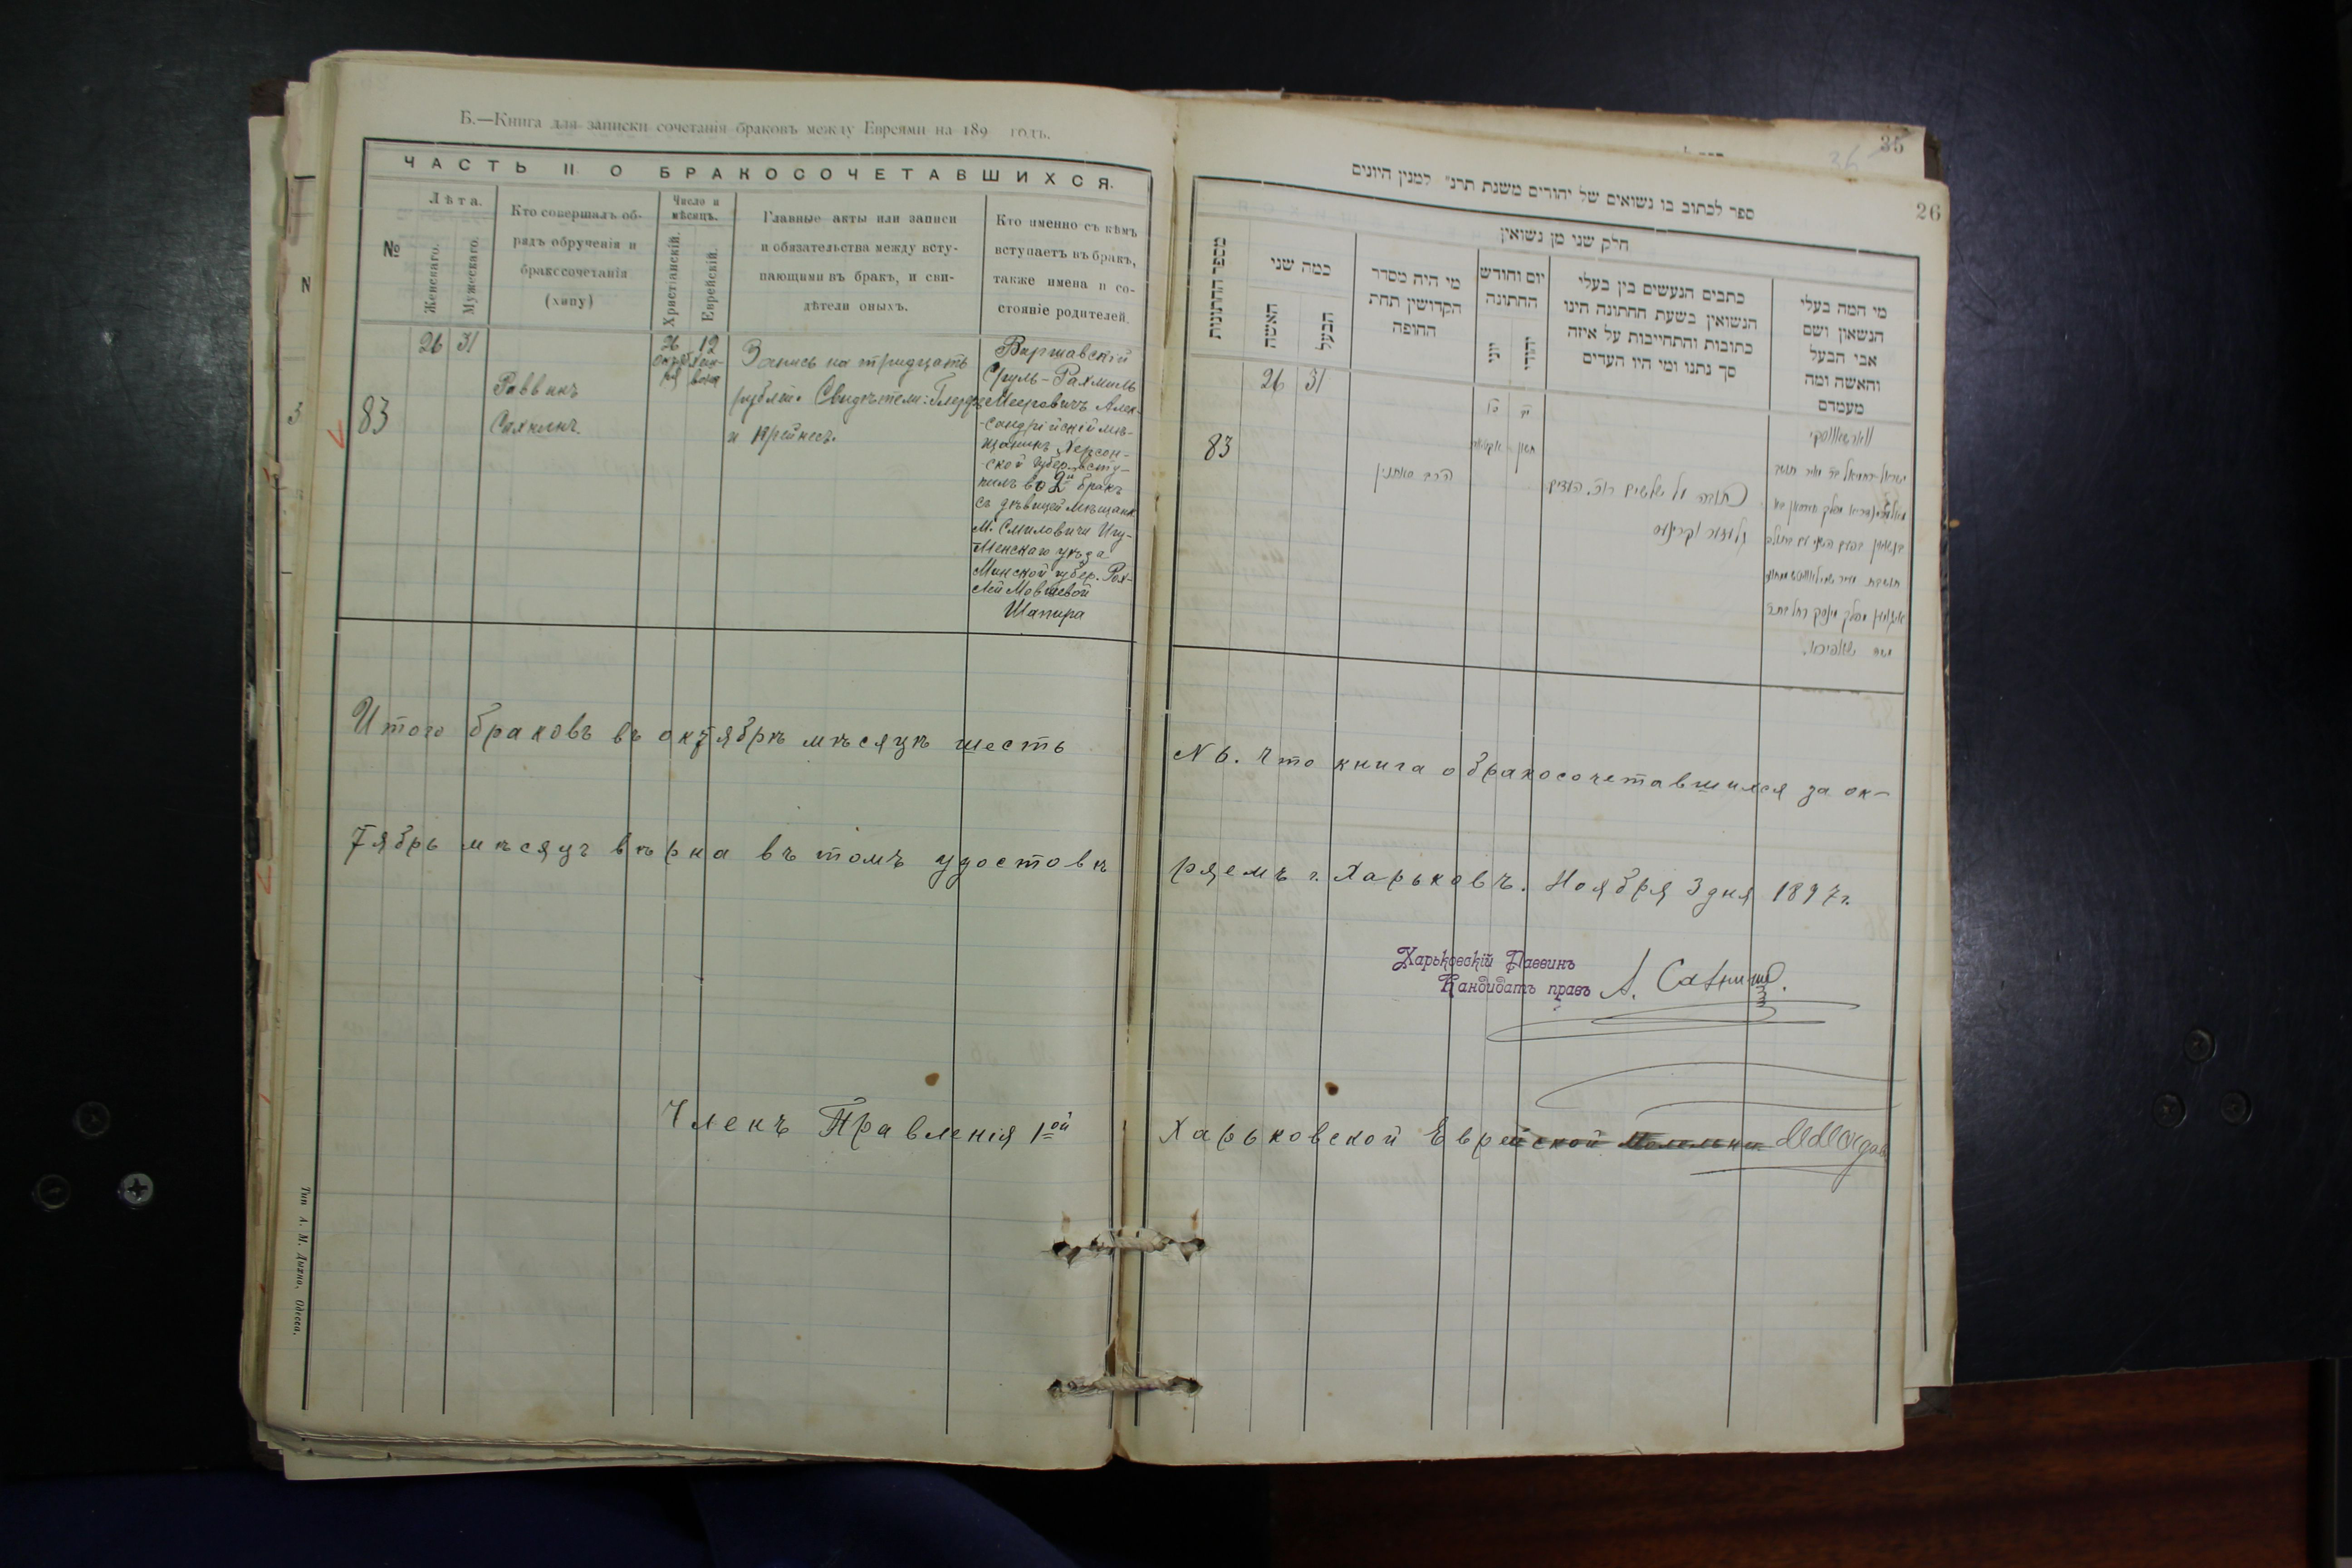 Б.—Книга для записки сочетанія браковъ между Евреями на 189 годъ.
ЧАСТЬ II О БРАКОСОЧЕТАВШИХСЯ.
№
Лѣта.
Женскаго.
Мужескаго.
Кто совершалъ об-
рядъ обрученія и
бракосочетанія
(хипу)
Число и
мѣсяцъ.
Христіанскій.
Еврейскій.
Главные акты или записи
и обязательства между всту-
пающими въ бракъ, и сви-
дѣтели оныхъ.
Кто именно съ кѣмъ
вступаетъ въ бракъ,
также имена и со-
стояніе родителей.
83
26
31
Раввинъ
Сахнинъ.
26
12
Запись на тридцать
рублей. Свидѣтели:
и Крейнесъ.
Варшавскій
Сруль-Рахмиль
Мееровичъ Алек-
сандрійскій мѣ-
щанинъ Херсон-
ской губер. всту-
пилъ во 2й бракъ
съ дѣвицей мѣщанк
м. Смиловичи Игу-
менскаго уѣзда
Минской губер. Рах-
лей Мовшевой
Шапира
Итого браковъ въ октябрѣ мѣсяцѣ шесть
тябрь мѣсяцъ вѣрна въ томъ удостовѣ
Членъ Правленія 1ой
Тип А. М. Дыхно. Одесса.
N
3
35
36
26
ספר לכתוב בו נשואים של יהודים משנת תרנ״ למנין היונים
חלק שני מן נשואין
מספר החתונות
כמה שני
האשה
הבעל
מי היה מסדר
הקדושין תחת
החופה
יום וחודש
החתונה
יוני
יהודי
כתבים הנעשים בין בעלי
הנשואין בשעת החתונה הינו
כתובות והתחייבות על איזה
סך נתנו ומי היו העדים
מי המה בעלי
הנשואין ושם
אבי הבעל
והאשה ומה
מעמדם
83
26
31
הרב סאחנין
חשון
כתובה על שלשים רו״כ. העדים
וקריינעס
ווארשאווסקי
ישראל-רחמיאל
שאפירא.
N6. Что книга о бракосочетавшихся за ок-
ряемъ г. Харьковъ. Ноября 3 дня 1897 г.
Харьковскій Раввинъ
Кандидатъ правъ
Харьковской Еврейской